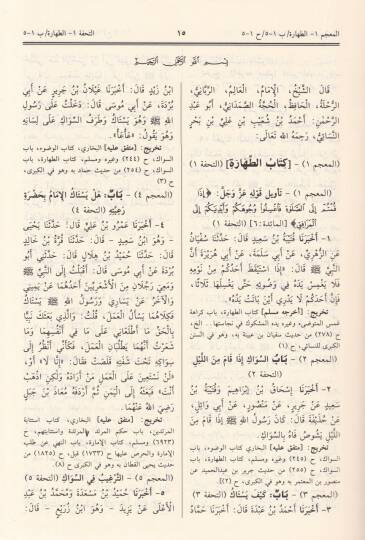 المعجم ١- الطهارة/ ب ١-٥/ ح ١-٥
١٥
التحفة ١- الطهارة/ ب ١-٥
بسم الله الرحمن الرحيم
قَالَ الشَّيْخُ، الْإِمَامُ، الْعَالِمُ، الرَّبَّانِيُّ،
الرُّحْلَةُ، الْحَافِظُ، الْحُجَّةُ الصَّمَدَانِيُّ، أَبُو عَبْدِ
الرَّحْمٰنِ: أَحْمَدُ بْنُ شُعَيْبِ بْنِ عَلِيِّ بْنِ بَحْرٍ،
النَّسَائِيُّ، رَحِمَهُ اللهُ تَعَالَى:
(المعجم ١) - [كِتَابُ الطَّهَارَةِ] (التحفة ١)
(المعجم ١) - تأويل قوله عز وجل: ﴿إِذَا
قُمْتُمْ إِلَى الصَّلَاةِ فَاغْسِلُوا وُجُوهَكُمْ وَأَيْدِيَكُمْ إِلَى
الْمَرَافِقِ﴾ [المائدة: ٦] (التحفة ١)
١- أَخْبَرَنَا قُتَيْبَةُ بْنُ سَعِيدٍ قَالَ: حَدَّثَنَا سُفْيَانُ
عَنِ الزُّهْرِيِّ، عَنْ أَبِي سَلَمَةَ، عَنْ أَبِي هُرَيْرَةَ أَنَّ
النَّبِيَّ ﷺ قَالَ: «إِذَا اسْتَيْقَظَ أَحَدُكُمْ مِنْ نَوْمِهِ
فَلَا يَغْمِسْ يَدَهُ فِي وَضُوئِهِ حَتَّى يَغْسِلَهَا ثَلَاثًا،
فَإِنَّ أَحَدَكُمْ لَا يَدْرِي أَيْنَ بَاتَتْ يَدُهُ».
تخريج: [أخرجه مسلم] كتاب الطهارة، باب كراهة
غمس المتوضىء وغيره يده المشكوك في نجاستها . . . الخ،
ح (٢٧٨) من حديث سفيان بن عيينة به، وهو في السنن
الكبرى للنسائي، ح (١)
(المعجم ٢) - بَابُ السِّوَاكِ إِذَا قَامَ مِنَ اللَّيْلِ
(التحفة ٢)
٢- أَخْبَرَنَا إِسْحَاقُ بْنُ إِبْرَاهِيمَ وَقُتَيْبَةُ بْنُ
سَعِيدٍ عَنْ جَرِيرٍ، عَنْ مَنْصُورٍ، عَنْ أَبِي وَائِلٍ،
عَنْ حُذَيْفَةَ قَالَ: كَانَ رَسُولُ اللهِ ﷺ إِذَا قَامَ مِنَ
اللَّيْلِ يَشُوصُ فَاهُ بِالسِّوَاكِ.
تخريج: [متفق عليه] البخاري كتاب الوضوء، باب
السواك، ح (٢٤٥) وغيره ومسلم، كتاب الطهارة، باب
السواك، ح (٢٥٥) من حديث جرير بن عبدالحميد عن
منصور بن المعتمر به وهو في الكبرى، ح (٢)
(المعجم ٣) - بَابُ: كَيْفَ يَسْتَاكُ (التحفة ٣)
٣- أَخْبَرَنَا أَحْمَدُ بْنُ عَبْدَةَ قَالَ: حَدَّثَنَا حَمَّادُ
ابْنُ زَيْدٍ قَالَ: أَخْبَرَنَا غَيْلَانُ بْنُ جَرِيرٍ عَنْ أَبِي
بُرْدَةَ، عَنْ أَبِي مُوسَى قَالَ: دَخَلْتُ عَلَى رَسُولِ
اللهِ ﷺ وَهُوَ يَسْتَاكُ وَطَرَفُ السِّوَاكِ عَلَى لِسَانِهِ
وَهُوَ يَقُولُ: «عَأْعَأْ».
تخريج: [متفق عليه] البخاري، كتاب الوضوء، باب
السواك، ح (٢٤٤) وغيره ومسلم، كتاب الطهارة، باب
السواك، ح (٢٥٤) من حديث حماد به وهو في الكبرى،
ح (٣)
(المعجم ٤) - بَابُ: هَلْ يَسْتَاكُ الْإِمَامُ بِحَضْرَةِ
رَعِيَّتِهِ (التحفة ٤)
٤- أَخْبَرَنَا عَمْرُو بْنُ عَلِيٍّ قَالَ: حَدَّثَنَا يَحْيَى
- وَهُوَ ابْنُ سَعِيدٍ - قَالَ: حَدَّثَنَا قُرَّةُ بْنُ خَالِدٍ
قَالَ: حَدَّثَنَا حُمَيْدُ بْنُ هِلَالٍ قَالَ: حَدَّثَنِي أَبُو
بُرْدَةَ عَنْ أَبِي مُوسَى قَالَ: أَقْبَلْتُ إِلَى النَّبِيِّ ﷺ
وَمَعِي رَجُلَانِ مِنَ الْأَشْعَرِيِّينَ أَحَدُهُمَا عَنْ يَمِينِي
وَالْآخَرُ عَنْ يَسَارِي وَرَسُولُ اللهِ ﷺ يَسْتَاكُ
فَكِلَاهُمَا يَسْأَلُ الْعَمَلَ، قُلْتُ: وَالَّذِي بَعَثَكَ نَبِيًّا
بِالْحَقِّ مَا أَطْلَعَانِي عَلَى مَا فِي أَنْفُسِهِمَا وَمَا
شَعَرْتُ أَنَّهُمَا يَطْلُبَانِ الْعَمَلَ، فَكَأَنِّي أَنْظُرُ إِلَى
سِوَاكِهِ تَحْتَ شَفَتِهِ قَلَصَتْ فَقَالَ: «إِنَّا لَا - أَوْ،
لَنْ نَسْتَعِينَ عَلَى الْعَمَلِ مَنْ أَرَادَهُ وَلٰكِنِ اذْهَبْ
أَنْتَ» فَبَعَثَهُ إِلَى الْيَمَنِ ثُمَّ أَرْدَفَهُ مُعَاذُ بْنُ جَبَلٍ
رَضِيَ اللهُ عَنْهُمَا.
تخريج: [متفق عليه] البخاري، كتاب استتابة
المرتدين، باب حكم المرتد والمرتدة واستتابتهم، ح
(٦٩٢٣) ومسلم، كتاب الإمارة، باب النهي عن طلب
الإمارة والحرص عليها ح (١٧٣٣) قبل، ح (١٨٢٥) من
حديث يحيى القطان به وهو في الكبرى ح (٨)
(المعجم ٥) - التَّرْغِيبُ فِي السِّوَاكِ (التحفة ٥)
٥- أَخْبَرَنَا حُمَيْدُ بْنُ مَسْعَدَةَ وَمُحَمَّدُ بْنُ عَبْدِ
الْأَعْلَى عَنْ يَزِيدَ - وَهُوَ ابْنُ زُرَيْعٍ - قَالَ: